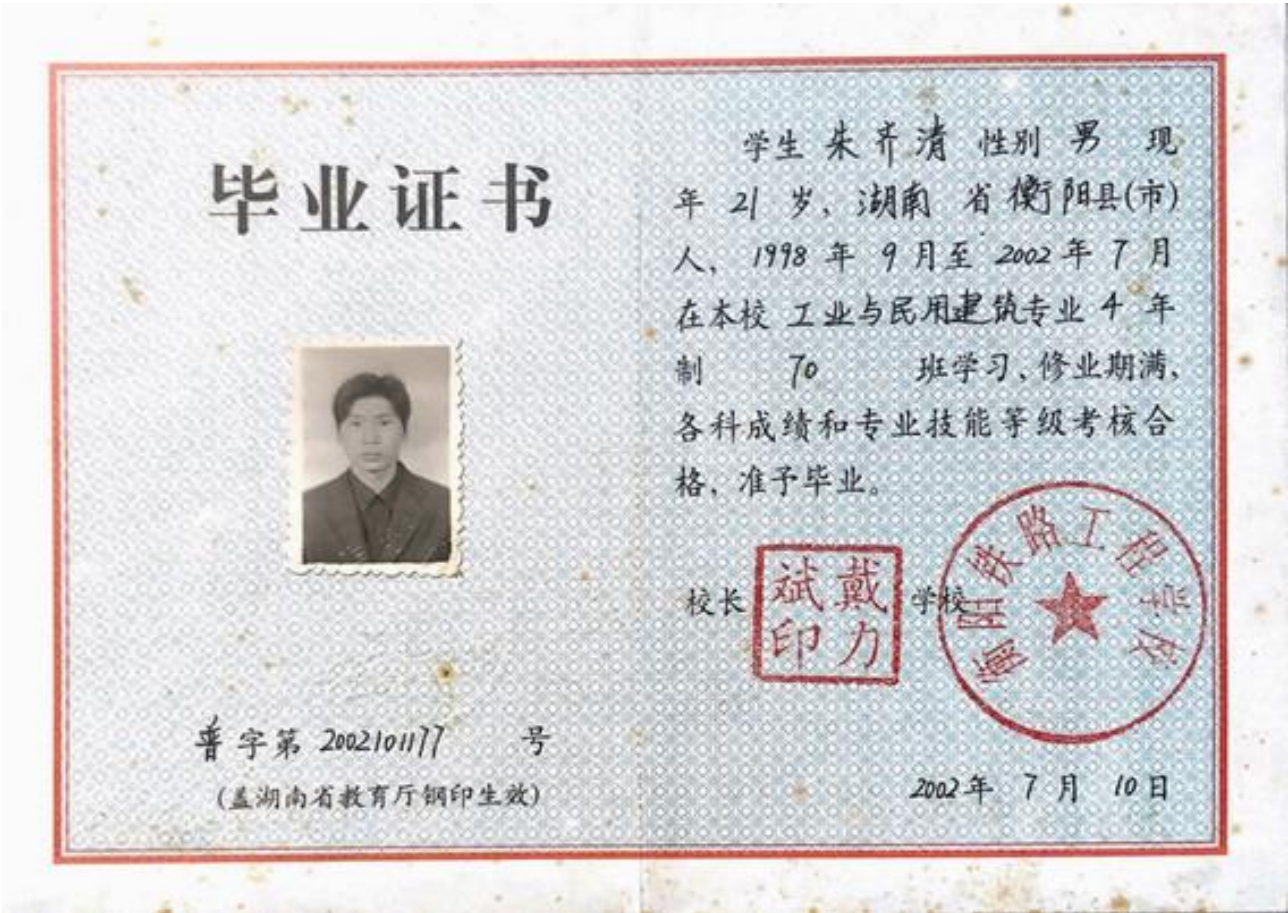 毕业证书
普字第 2002101177 号
(盖湖南省教育厅钢印生效)
学生 朱齐清 性别 男 现
年 21 岁、湖南 省 衡阳县(市)
人、1998 年 9 月至 2002 年 7 月
在本校 工业与民用建筑专业 4 年
制 70 班学习、修业期满、
各科成绩和专业技能等级考核合
格、准予毕业。
校长
戴力斌印
学校
衡阳铁路工程学校
2002年 7 月 10 日